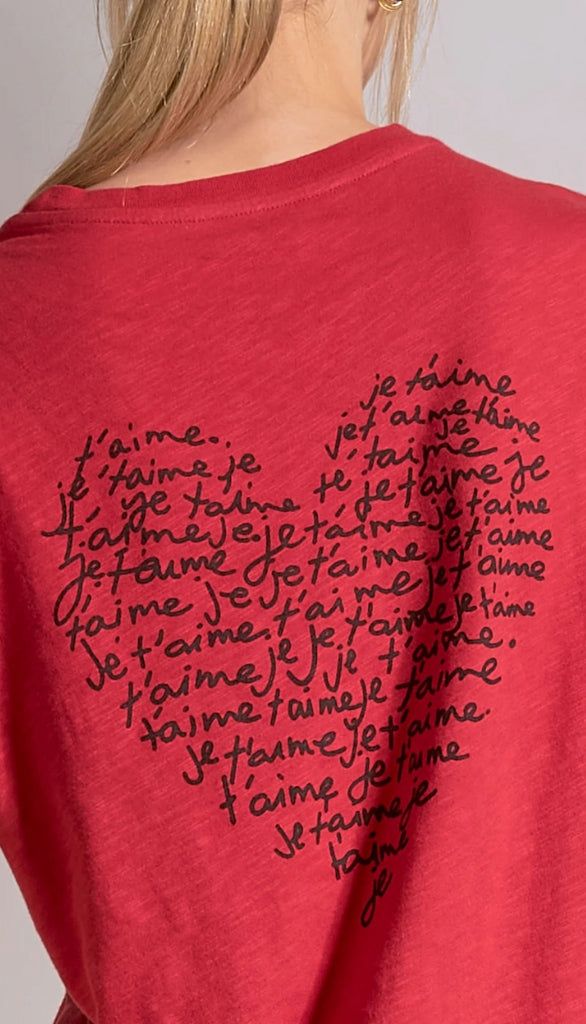 je t'aime
t'aime. je t'aime t'aime
je t'aime je te t'aime je
je t'aime je t'aime je
t'aime je. je t'aime je t'aime
je t'aime je je t'aime je t'aime
t'aime je t'aime je t'aime
je t'aime. je je t'aime je t'aime
t'aime je je t'aime.
t'aime t'aime je t'aime
je t'aime je t'aime.
t'aime je t'aime
je t'aime je
t'aime
je